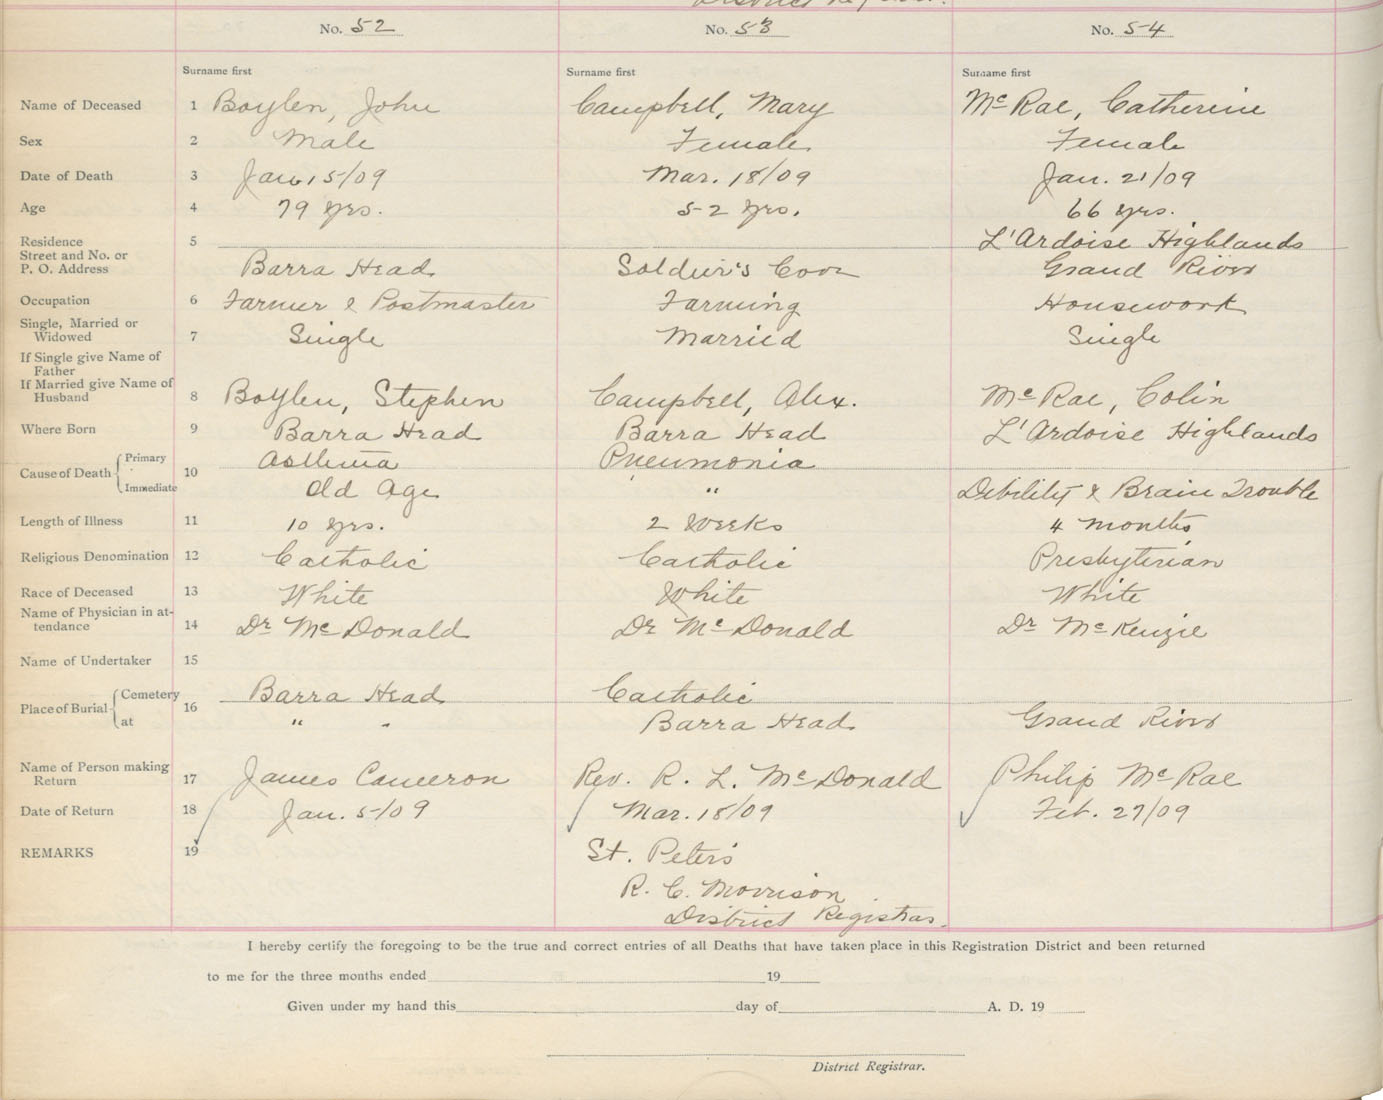 District Registrar.
No. 52 No. 53 No. 54
Surname first Surname first Surname first
Name of Deceased 1 Boylen, John Campbell, Mary McRae, Catherine
Sex 2 Male Female Female
Date of Death 3 Jan 15/09 Mar. 18/09 Jan. 21/09
Age 4 79 yrs. 52 yrs. 66 yrs.
Residence 5 L'Ardoise Highlands
Street and No. or
P. O. Address Barra Head Soldier's Cove Grand River
Occupation 6 Farmer & Postmaster Farming Housework
Single, Married or
Widowed 7 Single Married Single
If Single give Name of
Father
If Married give Name of
Husband 8 Boylen, Stephen Campbell, Alex. McRae, Colin
Where Born 9 Barra Head Barra Head L'Ardoise Highlands
Cause of Death Primary 10 Asthma Pneumonia
Immediate Old Age " Debility & Brain Trouble
Length of Illness 11 10 yrs. 2 Weeks 4 months
Religious Denomination 12 Catholic Catholic Presbyterian
Race of Deceased 13 White White White
Name of Physician in at-
tendance 14 Dr McDonald Dr McDonald Dr McKenzie
Name of Undertaker 15
Place of Burial Cemetery 16 Barra Head Catholic
at " " Barra Head Grand River
Name of Person making
Return 17 James Cameron Rev. R. L. McDonald Philip McRae
Date of Return 18 Jan. 5/09 Mar. 18/09 Feb. 27/09
REMARKS 19 St. Peter's
R. C. Morrison
District Registrar.
I hereby certify the foregoing to be the true and correct entries of all Deaths that have taken place in this Registration District and been returned
to me for the three months ended 19
Given under my hand this day of A. D. 19
District Registrar.